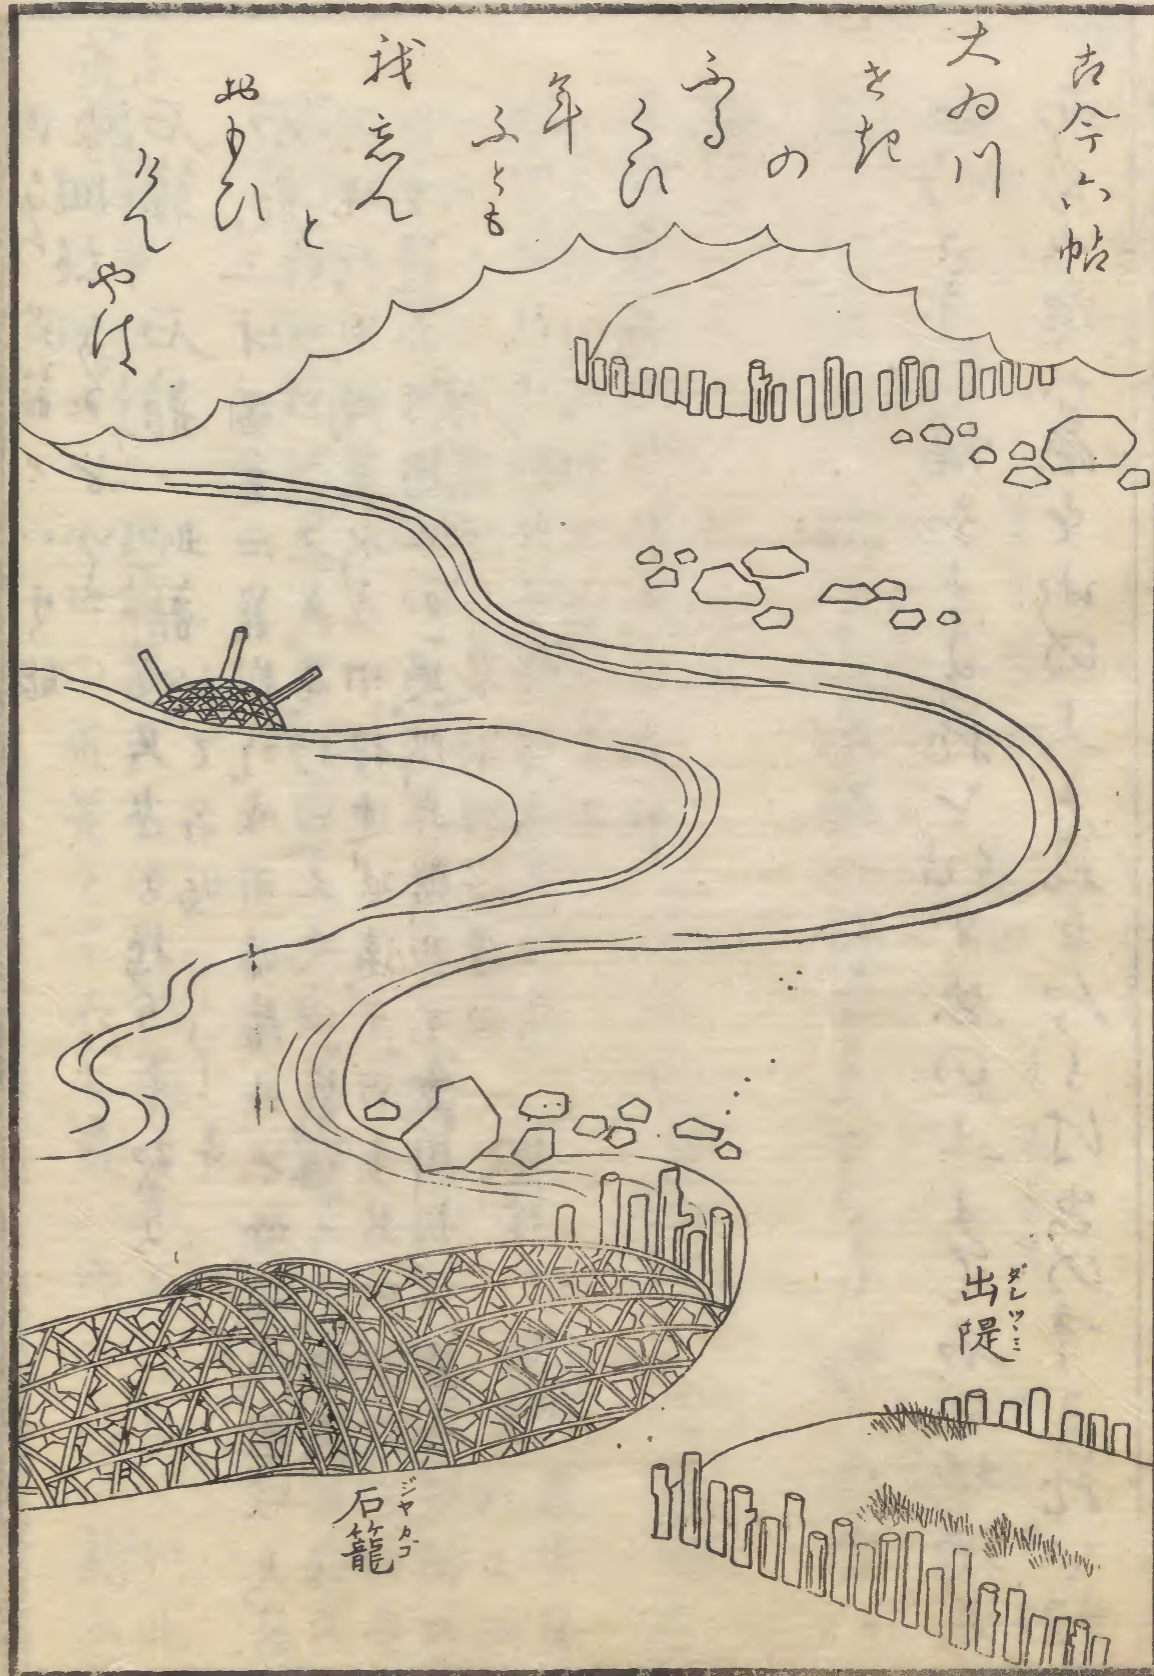 古今六帖
大ゐ川
せき
の
ふる
くひ
年
ふとも
我忘ん
と
おもひ
けん
やは
出隄
ダシツヽミ
石籠
ジヤカゴ